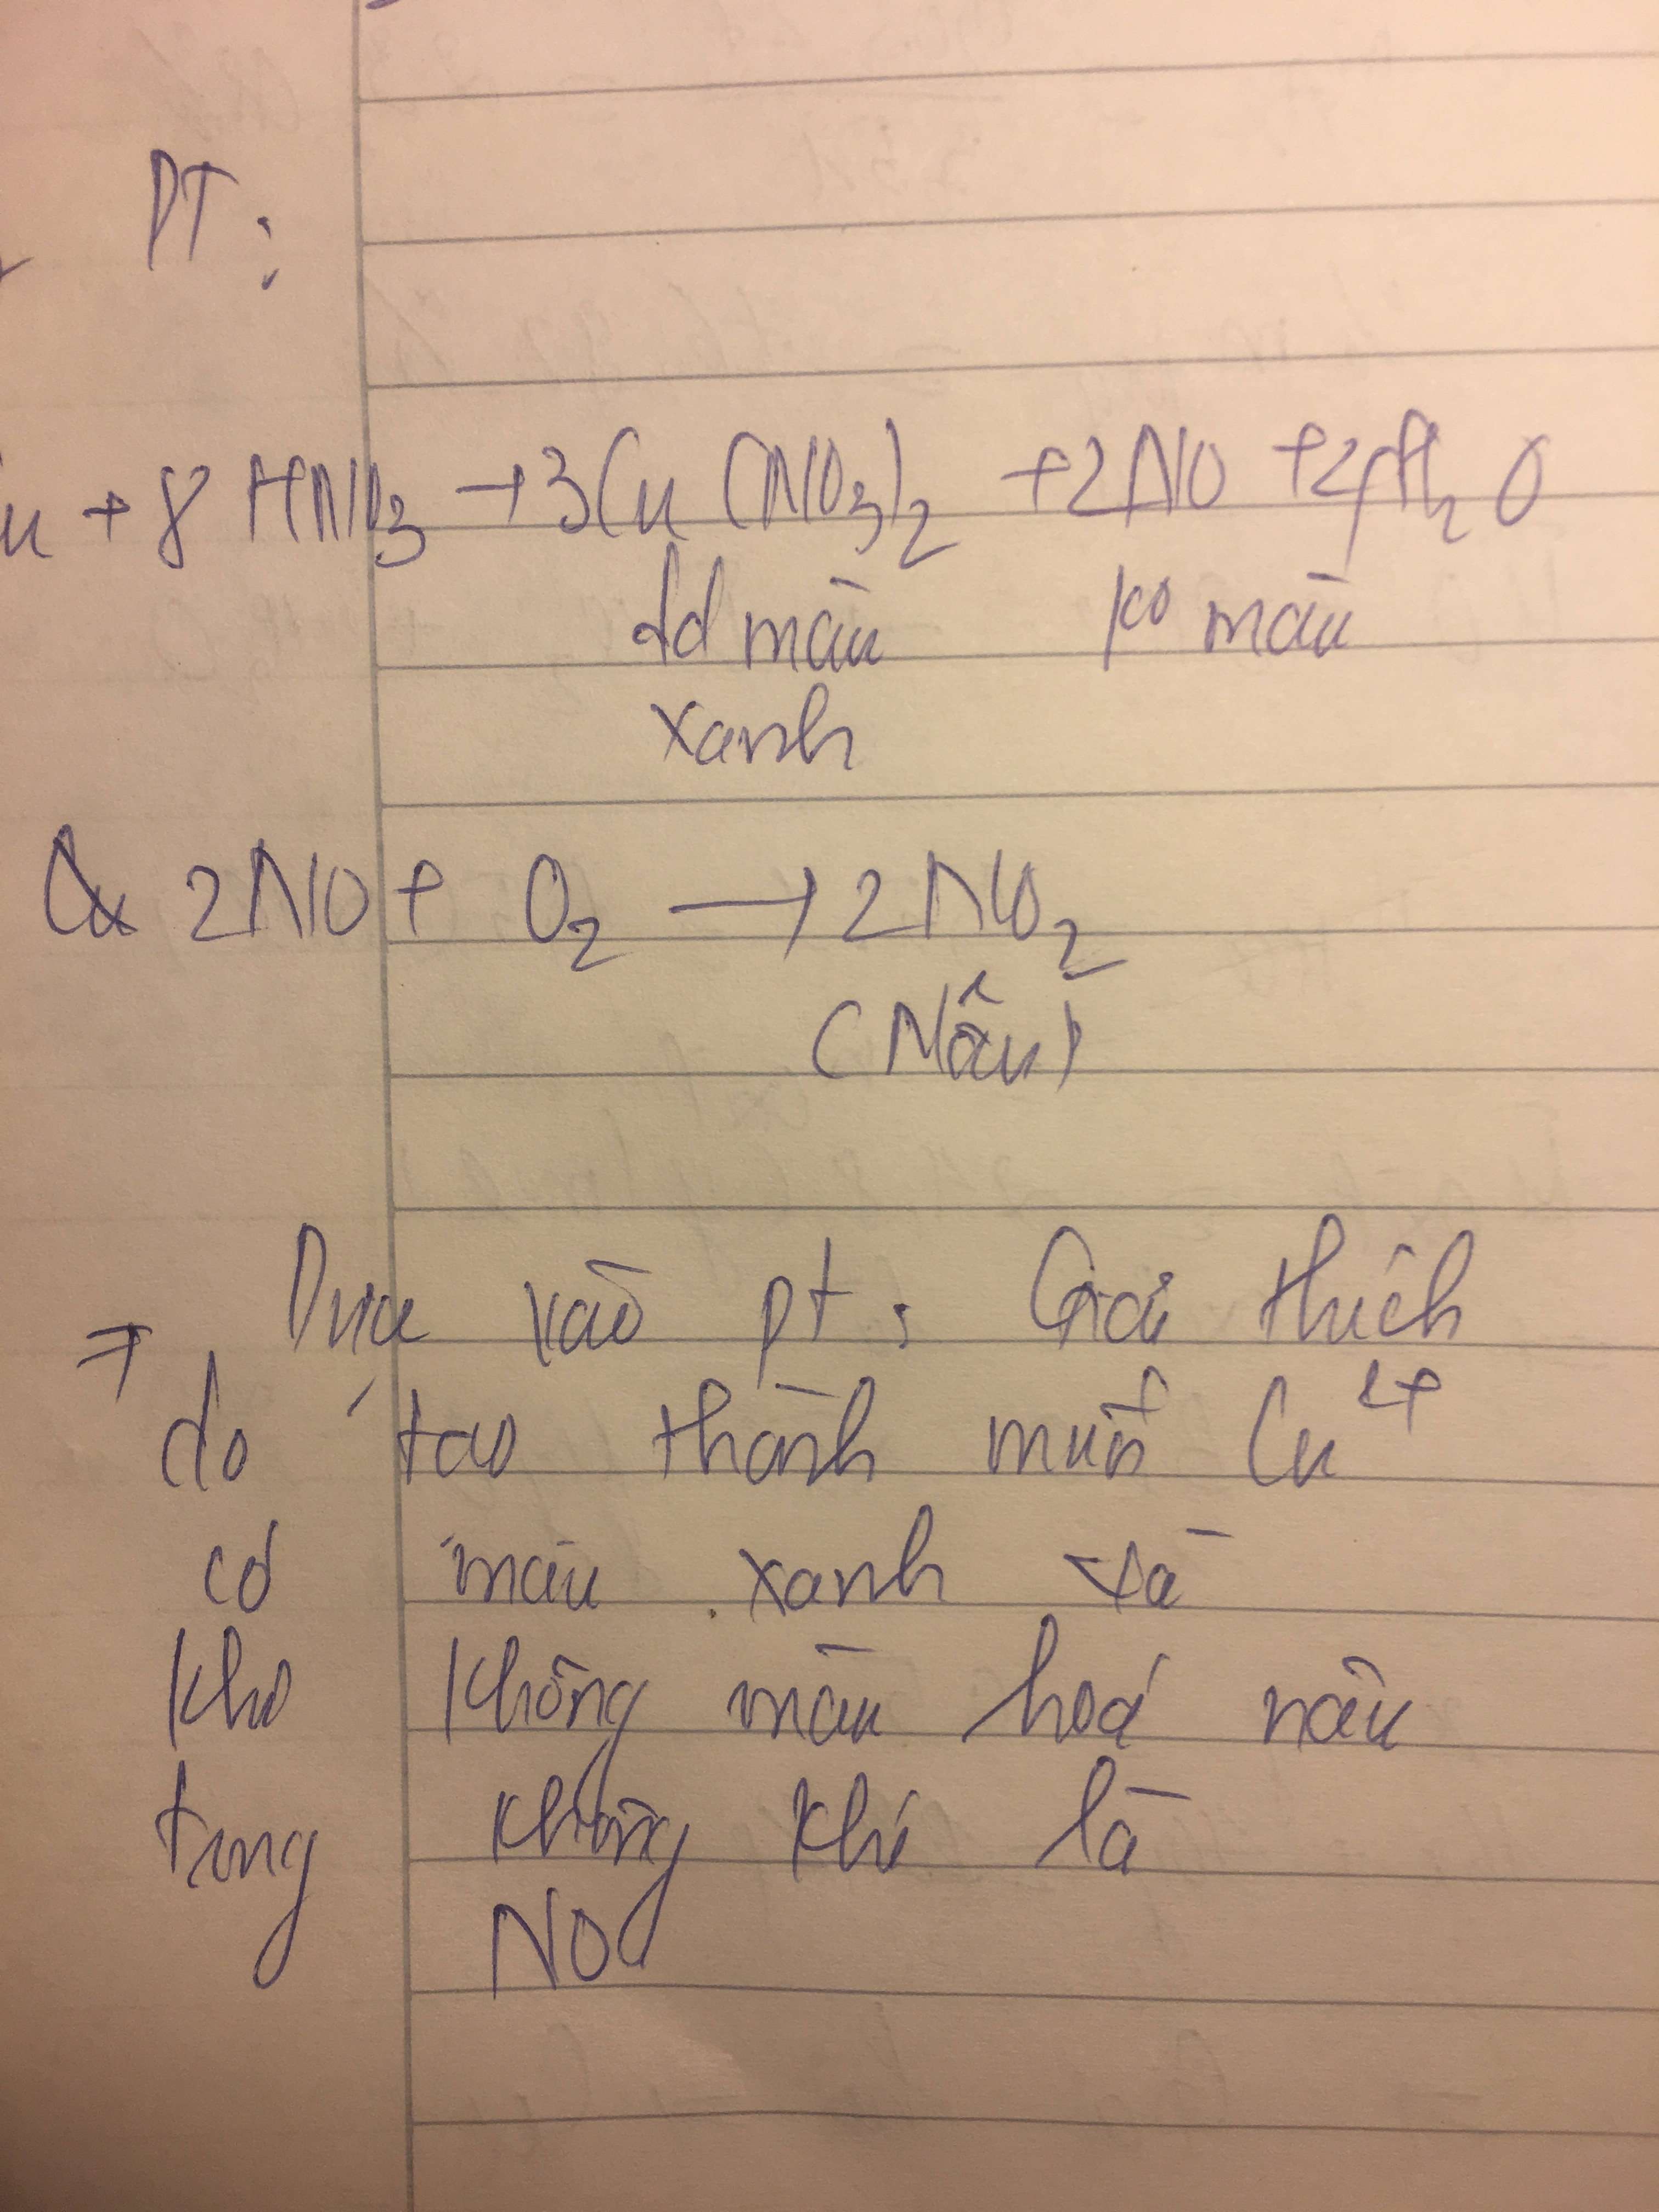 PT:
u + 8 HNO3 → 3Cu (NO3)2 + 2NO + 4H2O
dd màu ko màu
xanh
2NO + O2 → 2NO2
(Nâu)
⇒ Dựa vào pt: Giải thích
do tạo thành muối Cu2+
có màu xanh và
khí không màu hoá nâu
trong không khí là
NO